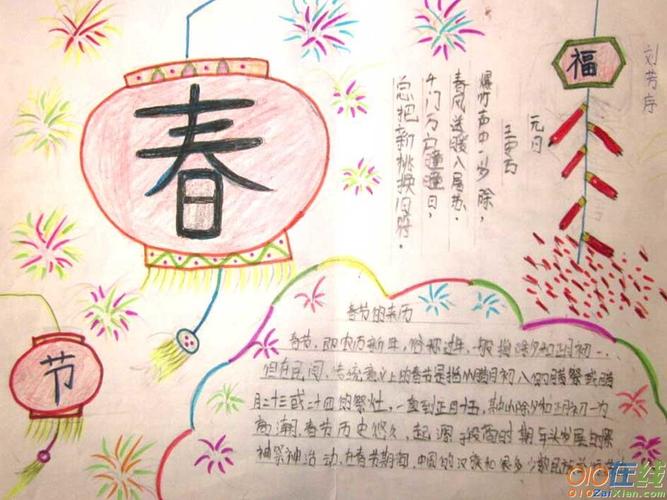 春
节
福
刘芳序
元日
王安石
爆竹声中一岁除，
春风送暖入屠苏.
千门万户曈曈日，
总把新桃换旧符.
春节的来历
春节，即农历新年，俗称过年，一般指除夕和正月初一.
但在民间，传统意义上的春节是指从腊月初八的腊祭或腊
月二十三或二十四的祭灶，一直到正月十五，其中以除夕和正月初一为
高潮.春节历史悠久，起源于殷商时期年头岁尾的祭
神祭神活动.在春节期间，中国的汉族和很多少数民族
010在线
010ZaiXian.com